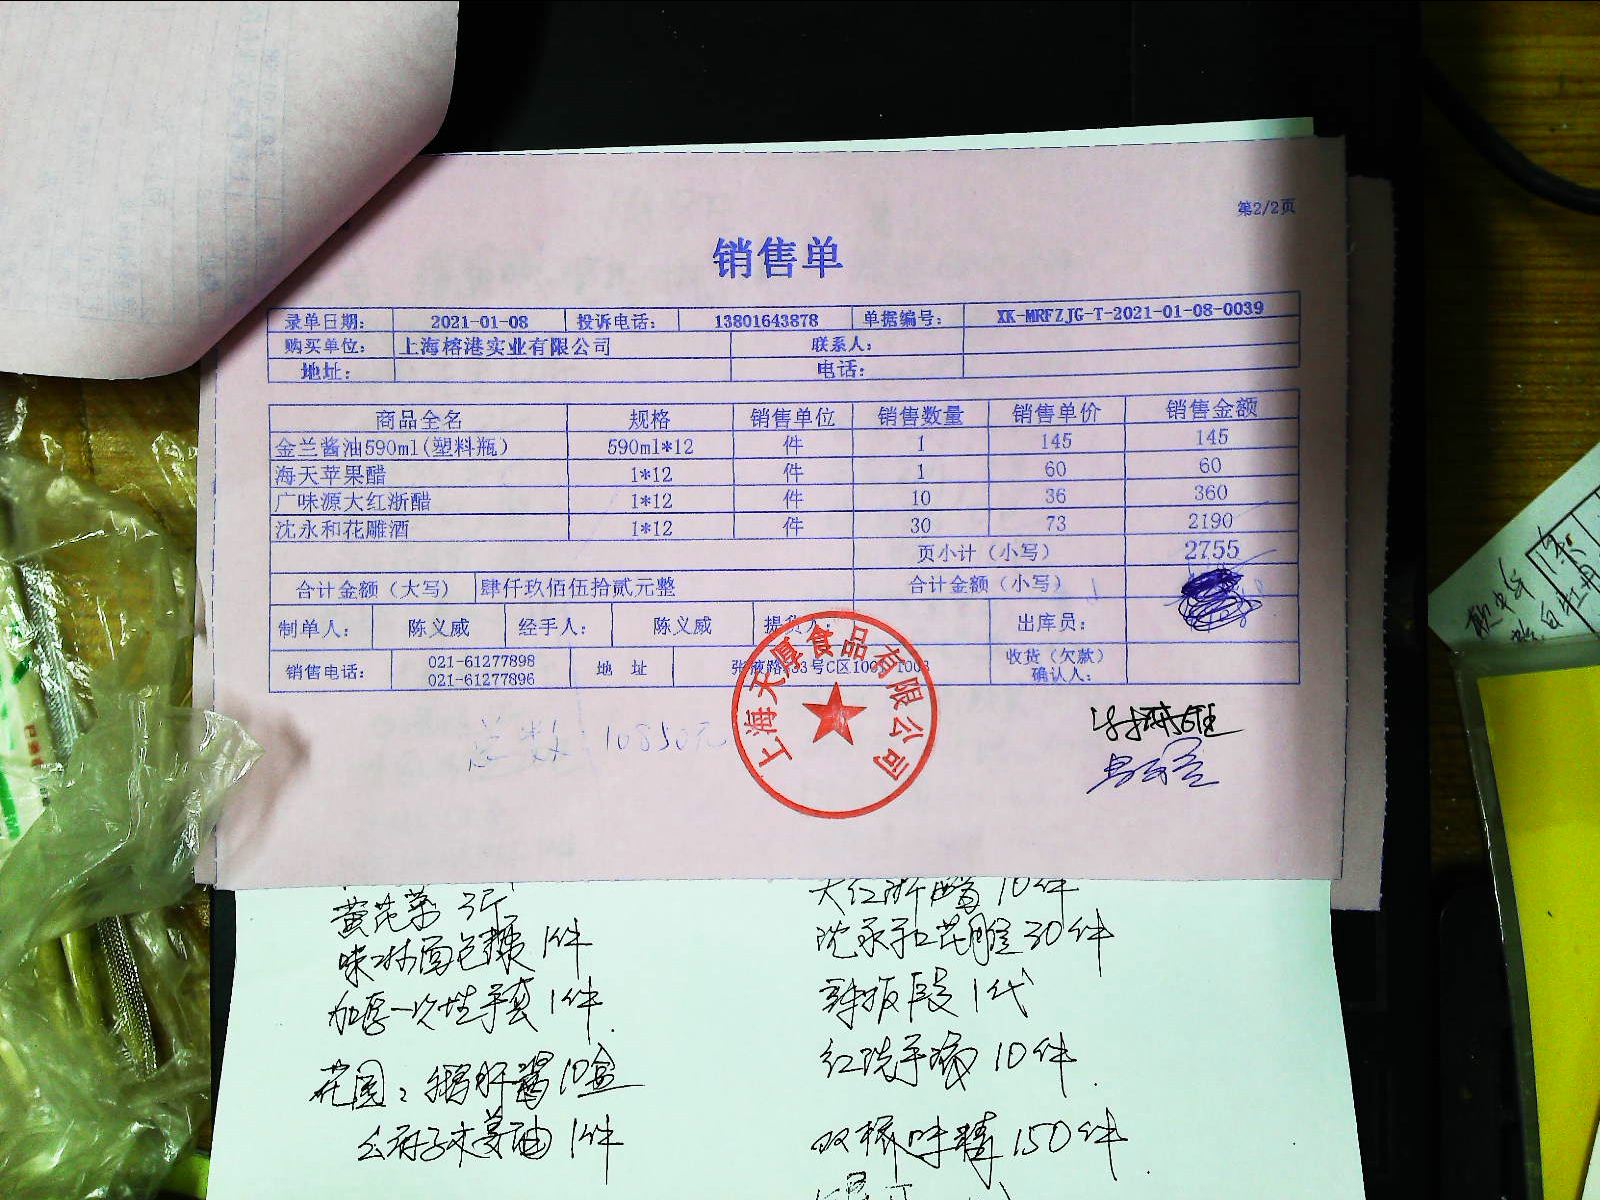 第2/2页
销售单
录单日期： 2021-01-08 投诉电话： 13801643878 单据编号： XK-MRFZJG-T-2021-01-08-0039
购买单位： 上海榕港实业有限公司 联系人：
地址： 电话：
商品全名 规格 销售单位 销售数量 销售单价 销售金额
金兰酱油590ml(塑料瓶) 590ml*12 件 1 145 145
海天苹果醋 1*12 件 1 60 60
广味源大红浙醋 1*12 件 10 36 360
沈永和花雕酒 1*12 件 30 73 2190
页小计（小写） 2755
合计金额（大写） 肆仟玖佰伍拾贰元整 合计金额（小写）
制单人： 陈义威 经手人： 陈义威 提货人： 出库员：
销售电话： 021-61277898 地 址 收货（欠款）
021-61277896 确认人：
上海天厚食品有限公司
总数 10850元
黄花菜 3斤
大红浙醋 10件
味淋面包糠 1件
沈永和花雕 30件
加厚一次性手套 1件
1代
花园：鹅肝酱10盒
红洗手液 10件
木姜油 1件
双桥味精 150件